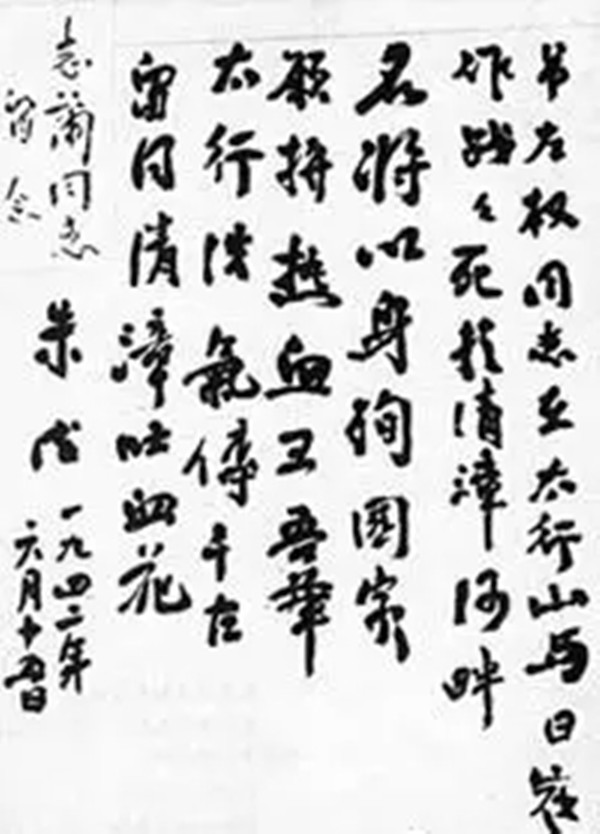 吊左权同志在太行山与日寇
作战々死於清漳河畔
名将以身殉国家
愿拚热血卫吾華
太行浩氣傳千古
留得清漳吐血花
朱德 一九四二年
六月十五日
志蘭同志
留念